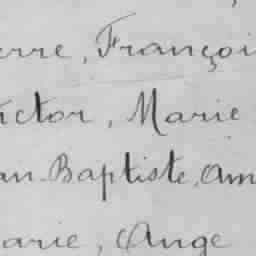 erre, Françoi
ictor, Marie
an-Baptiste, Am
arie, Ange